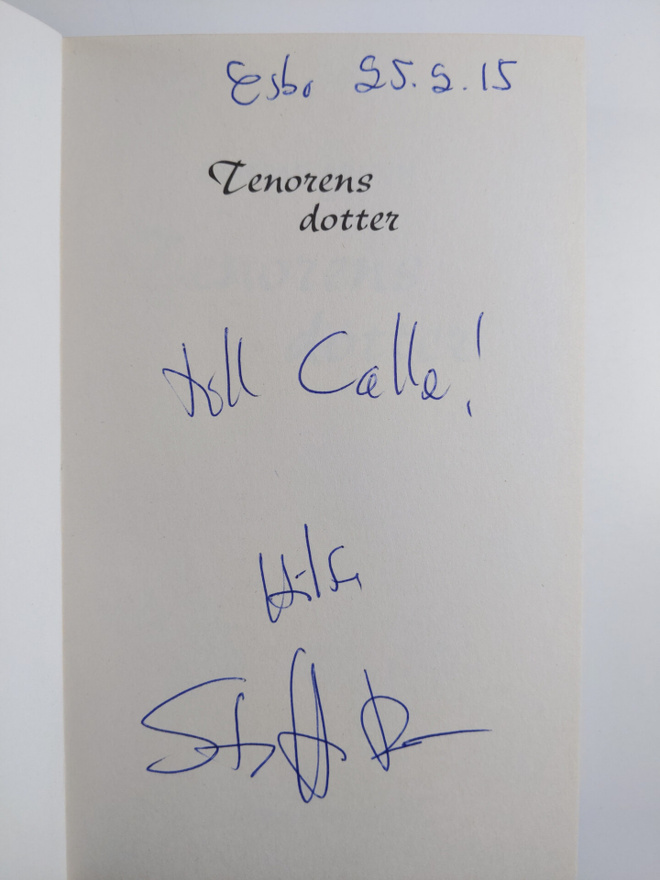 Esbo 25.2.15
Tenorens
dotter
till Calle!